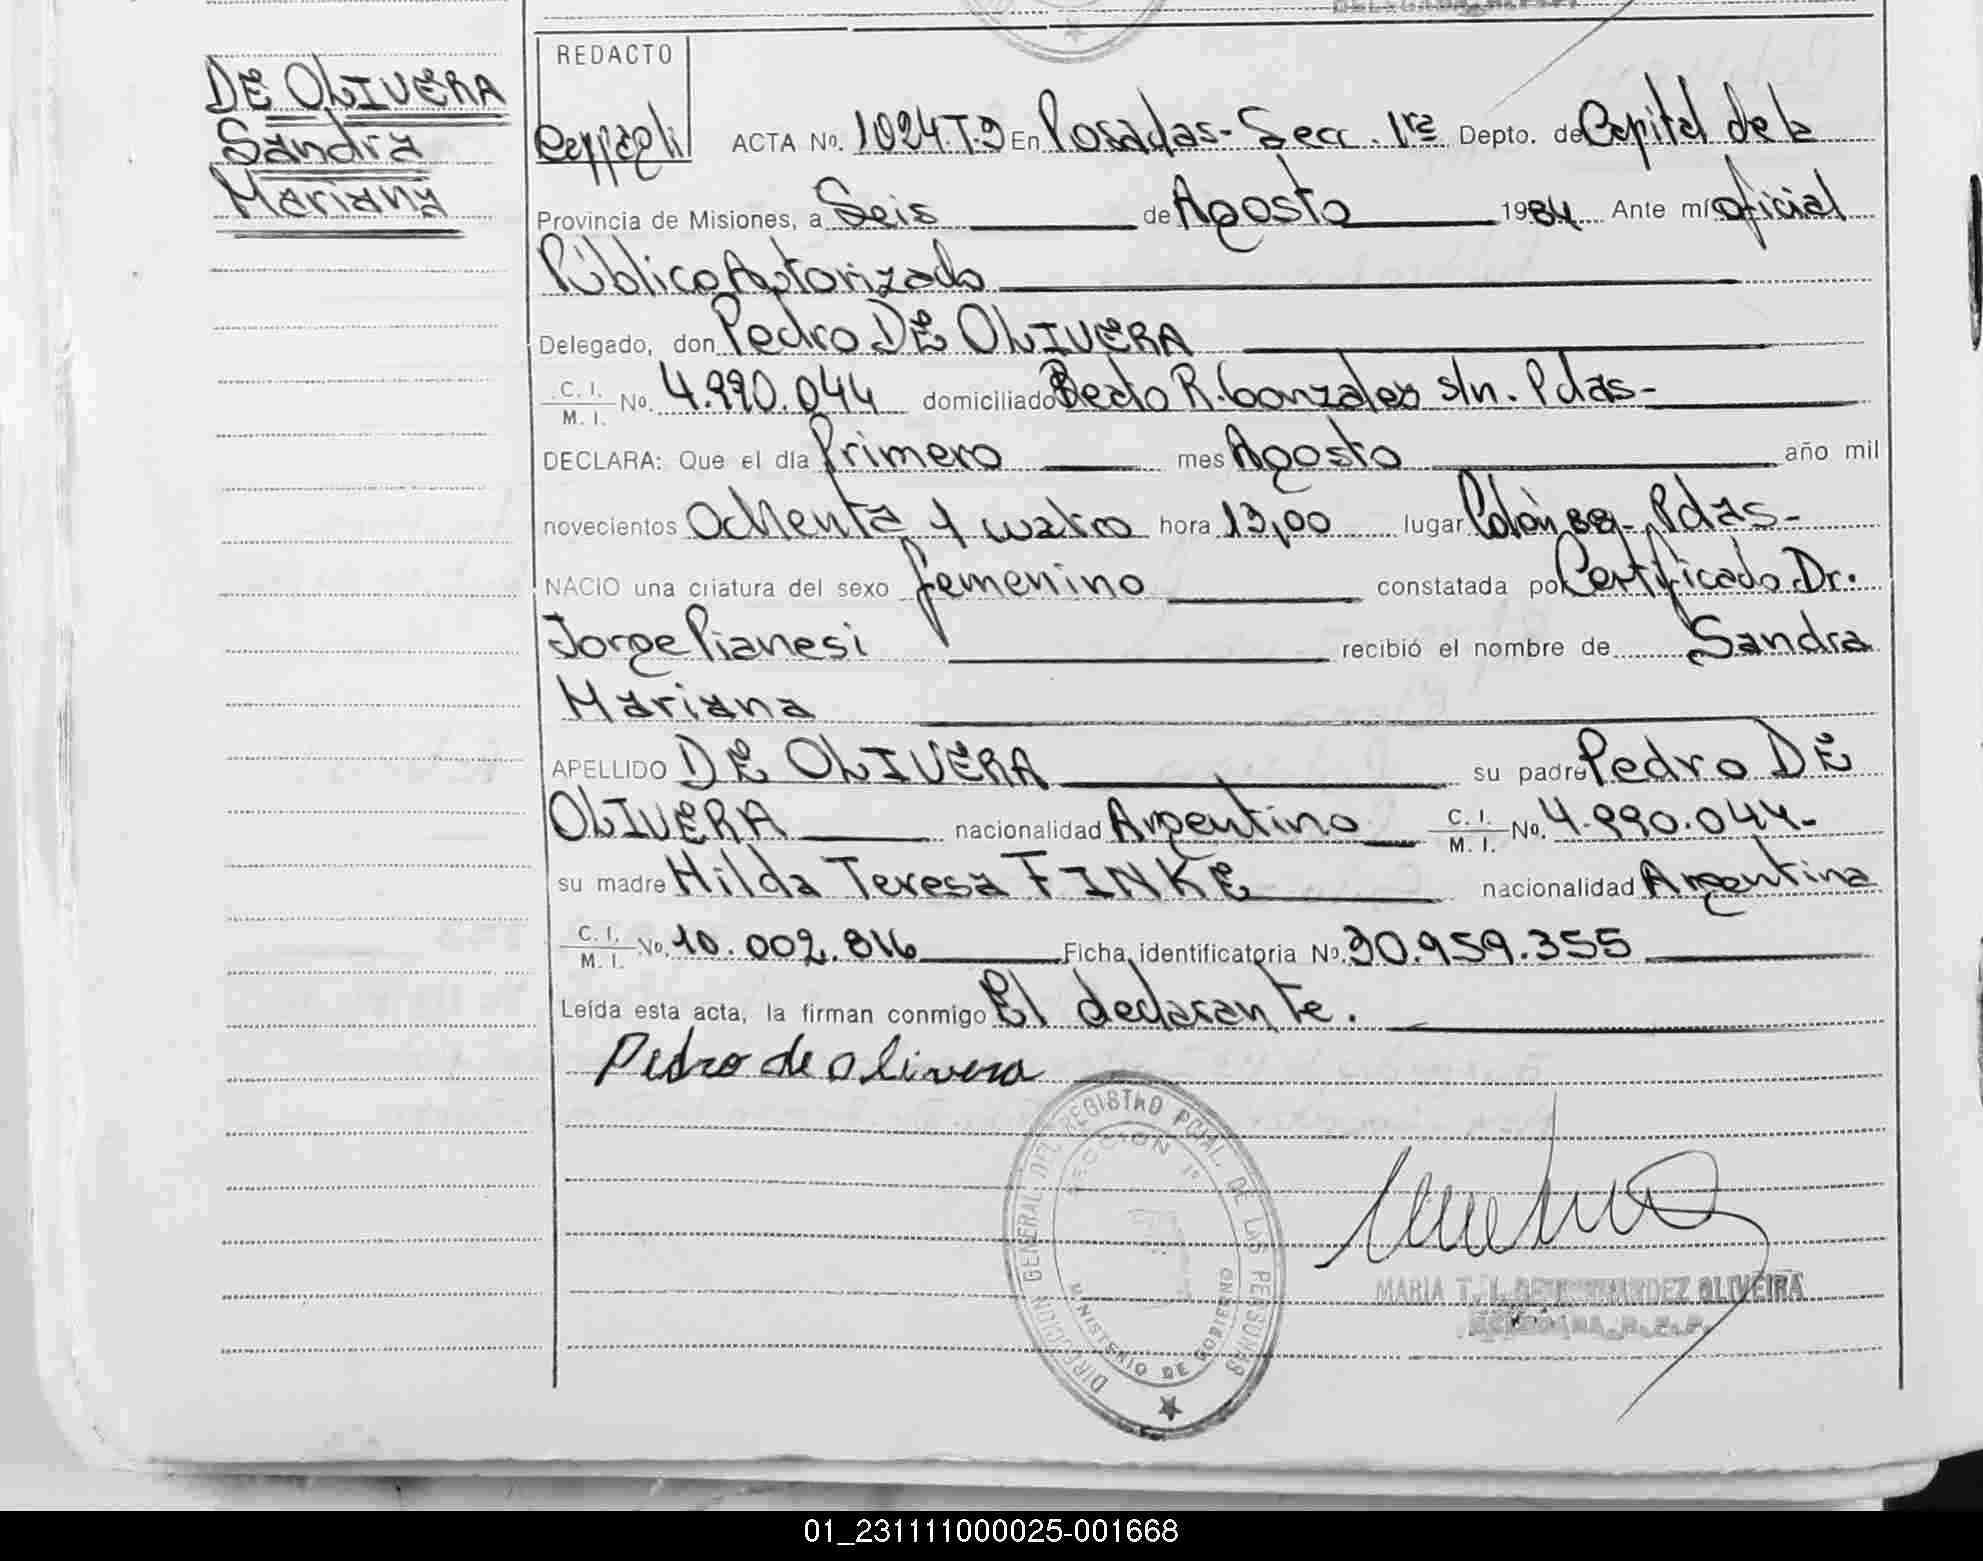 DE OLIVERA
Sandra
Mariana
REDACTO
ACTA No. 1024.T.9 En Posadas- Secc. 1ra Depto. de Capital de la
Provincia de Misiones, a Seis de Agosto 1984 Ante mí oficial
Público Autorizado
Delegado, don Pedro DE OLIVERA
C. I.
M. I. No. 4.990.044 domiciliado Beato R. Gonzales s/n. Pdas-
DECLARA: Que el día Primero mes Agosto año mil
novecientos Ochenta y cuatro hora 13,00 lugar Colón Pdas-
NACIO una criatura del sexo femenino constatada por Certificado Dr.
Jorge Pianesi recibió el nombre de Sandra
Mariana
APELLIDO DE OLIVERA su padre Pedro DE
OLIVERA nacionalidad Argentino C. I. M. I. No. 4.990.044-
su madre Hilda Teresa FINKE nacionalidad Argentina
C. I.
M. I. No. 10.002.816 Ficha identificatoria No. 30.959.355
Leída esta acta, la firman conmigo El declarante.
Pedro de olivera
DIRECCION GENERAL DEL REGISTRO PCIAL. DE LAS PERSONAS
SECCION 1ª
MINISTERIO DE GOBIERNO
MARIA T. OLIVEIRA
01_231111000025-001668